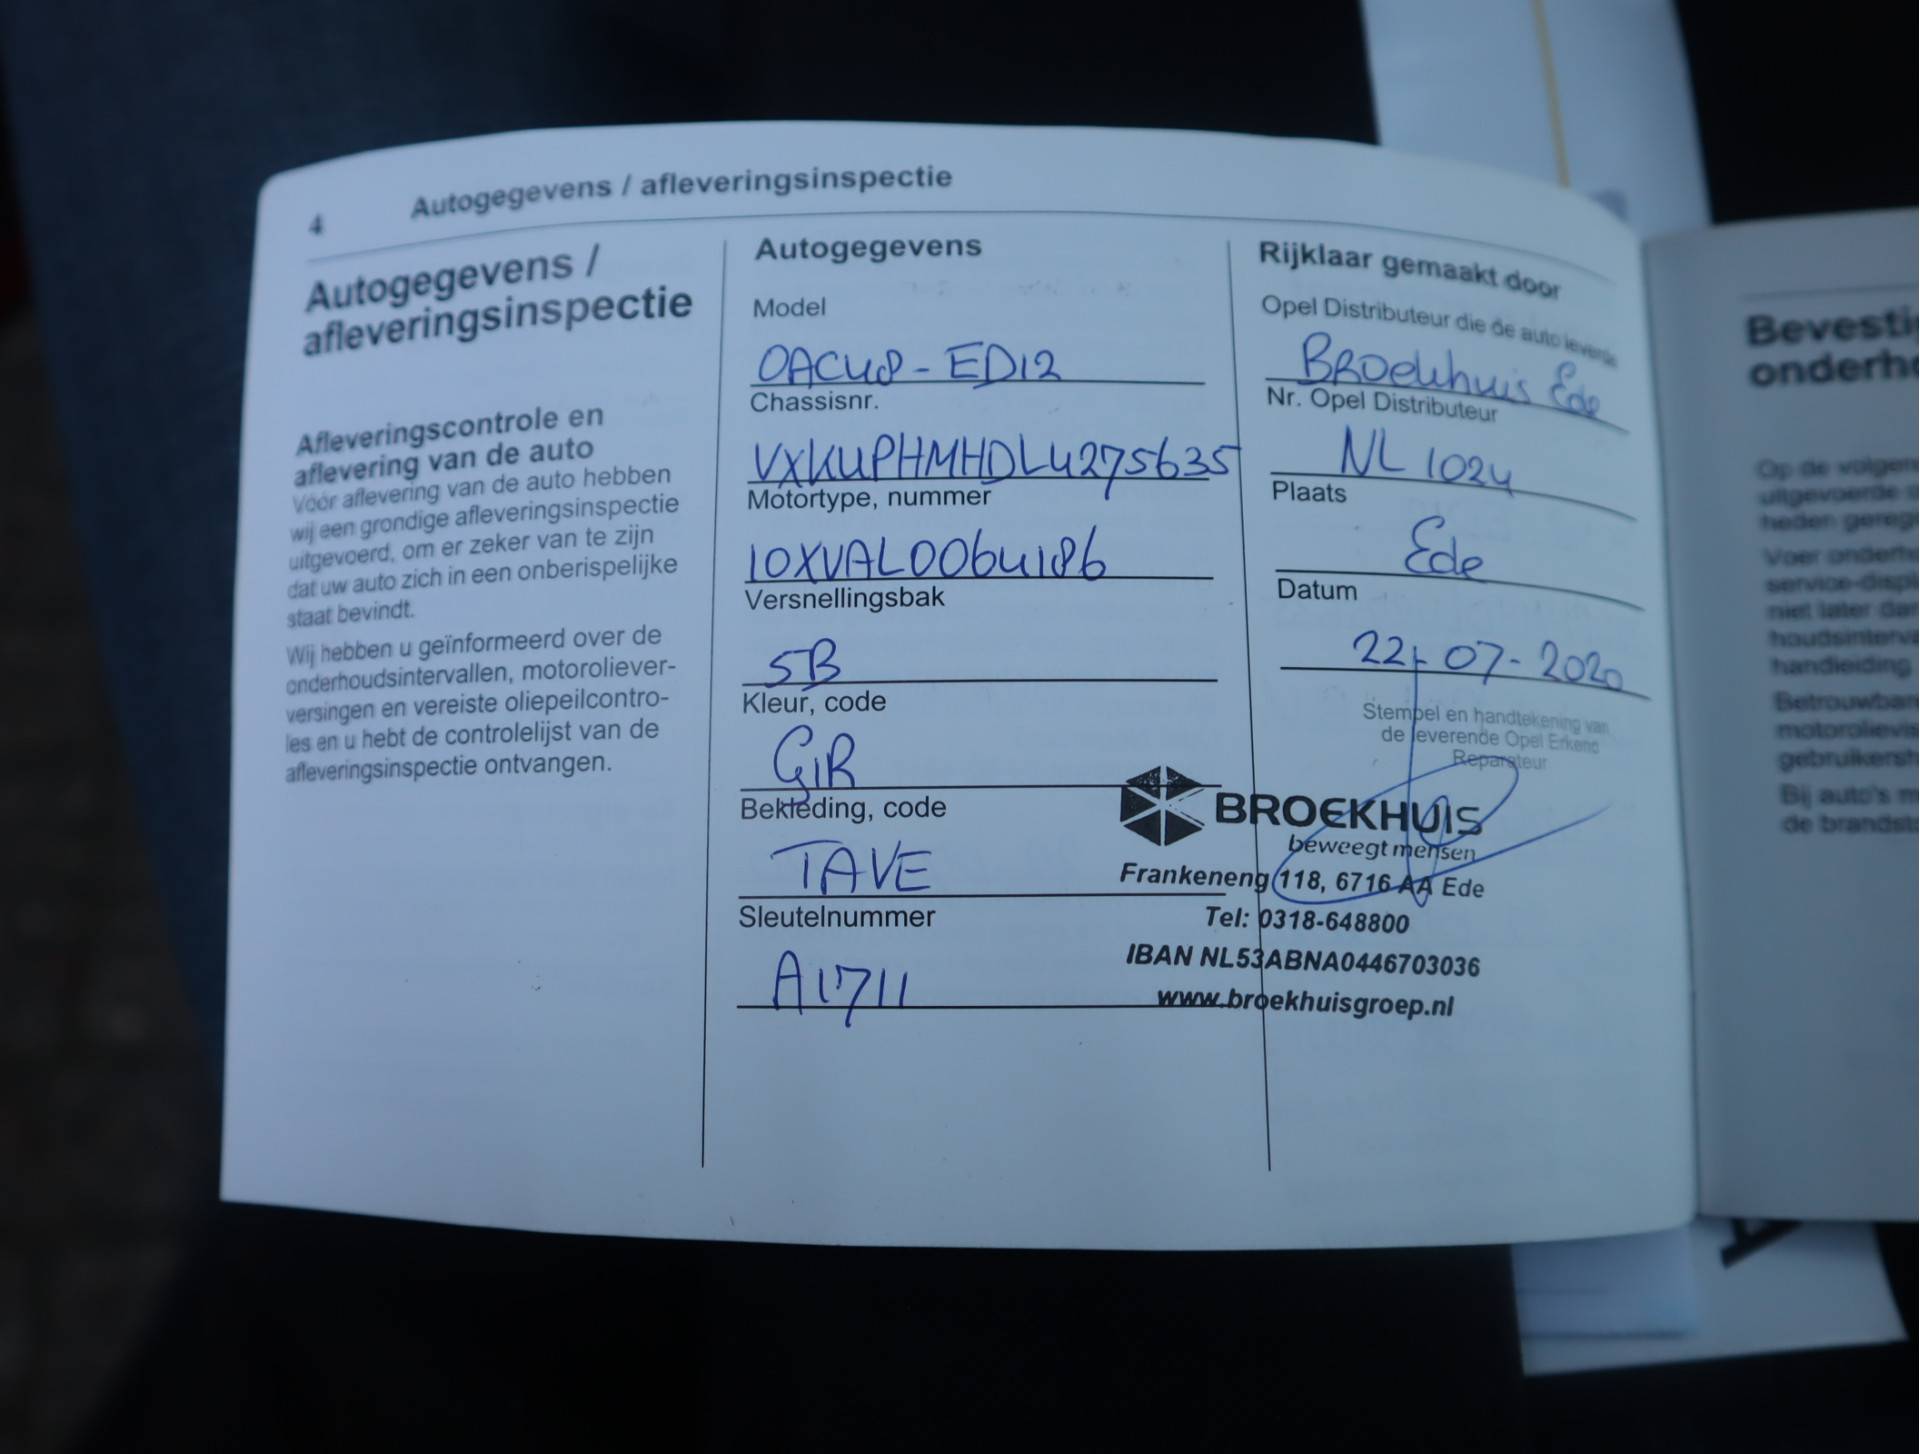 4 Autogegevens / afleveringsinspectie
Autogegevens /
afleveringsinspectie
Afleveringscontrole en
aflevering van de auto
Vóór aflevering van de auto hebben
wij een grondige afleveringsinspectie
uitgevoerd, om er zeker van te zijn
dat uw auto zich in een onberispelijke
staat bevindt.
Wij hebben u geïnformeerd over de
onderhoudsintervallen, motoroliever-
versingen en vereiste oliepeilcontro-
les en u hebt de controlelijst van de
afleveringsinspectie ontvangen.
Autogegevens
Model
OACU8-ED12
Chassisnr.
VXKUPHMHDL4275635
Motortype, nummer
10XVAL0064186
Versnellingsbak
5B
Kleur, code
G1R
Bekleding, code
TAVE
Sleutelnummer
A1711
Rijklaar gemaakt door
Opel Distributeur die de auto leverde
Broekhuis Ede
Nr. Opel Distributeur
NL 1024
Plaats
Ede
Datum
22-07-2020
Stempel en handtekening van
de leverende Opel Erkend
Reparateur
BROEKHUIS
beweegt mensen
Frankeneng 118, 6716 AA Ede
Tel: 0318-648800
IBAN NL53ABNA0446703036
www.broekhuisgroep.nl
Bevesti
onderho
Op de volgen
uitgevoerde
heden geregi
Voer onderho
service-displ
niet later dan
houdsinterva
handleiding
Betrouwbar
motorolievis
gebruikersh
Bij auto's m
de brandsto